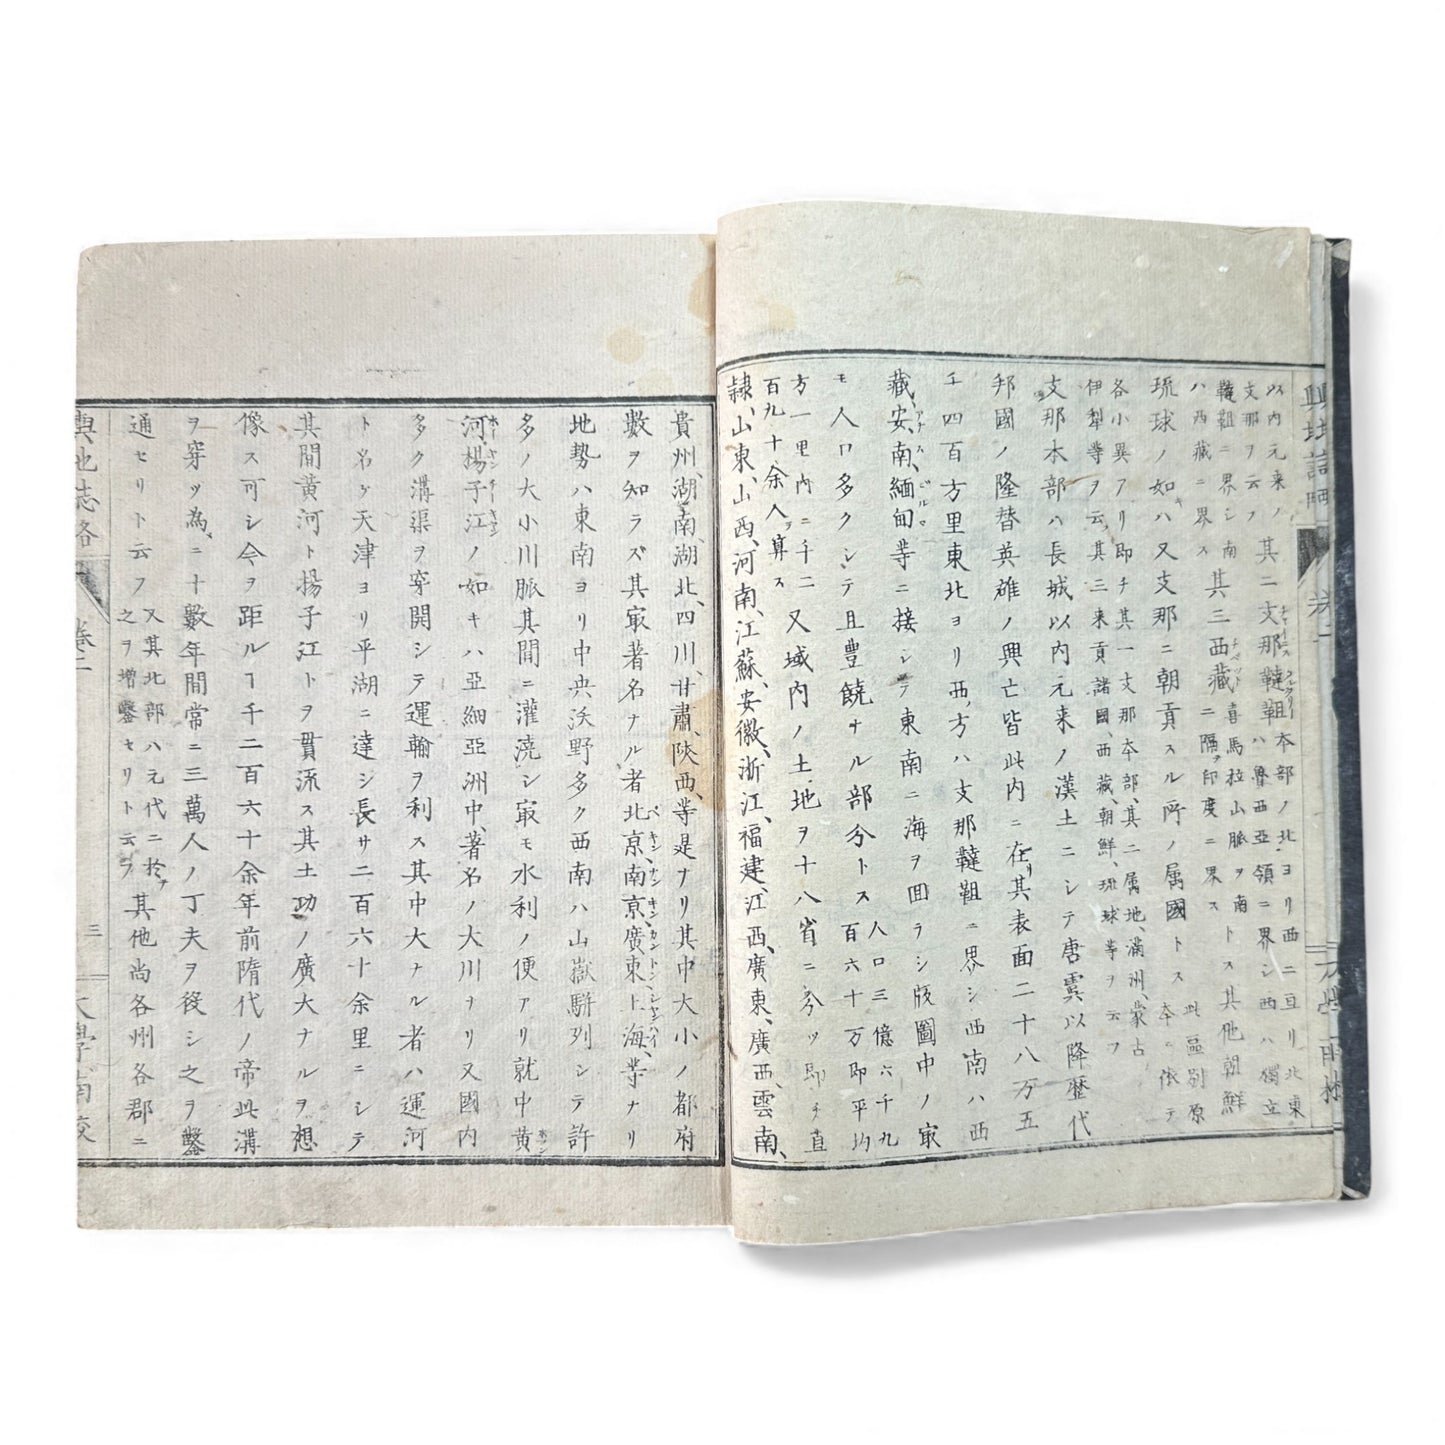 以内元来ノ
支那ヲ云フ
其二支那韃靼本部ノ北ヨリ西ニ亘リ北東
韃靼ニ界シ南
ハ魯西亞領ニ界シ西ハ獨立
ハ西藏ニ界ス
其三西藏
喜馬拉山脈ヲ南
ニ隔ヲ印度ニ界ス
トス其他朝鮮
琉球ノ如キハ又支那ニ朝貢スル所ノ属國トス
此區別原
本ニ依テ
各小異アリ即チ其一支那本部、其二属地、滿洲、蒙古
伊犁等ヲ云、其三来貢諸國、西藏、朝鮮、琉球等ヲ云フ
支那本部ハ長城以内元来ノ漢土ニシテ唐虞以降歴代
邦國ノ隆替英雄ノ興亡皆此内ニ在リ其表面二十八万五
千四百方里東北ヨリ西方ハ支那韃靼ニ界シ西南ハ西
藏、安南、緬甸等ニ接シテ東南ニ海ヲ囬ラシ版圖中ノ㝡
モ人口多クシテ且豊饒ナル部分トス
人口三億六千九
百六十万即平均
方一里内ニ千二
百九十余人ヲ算ス
又域内ノ土地ヲ十八省ニ分ツ即チ直
隷、山東、山西、河南、江蘇、安徽、浙江、福建、江西、廣東、廣西、雲南、
貴州、湖南、湖北、四川、甘肅、陝西、等是ナリ其中大小ノ都府
數ヲ知ラズ其㝡著名ナル者北京、南京、廣東、上海、等ナリ
ペキン、ナンキン、カントン、シャンハイ、
地勢ハ東南ヨリ中央沃野多ク西南ハ山嶽駢列シテ許
多ノ大小川脈其間ニ灌澆シ㝡モ水利ノ便アリ就中黄
河、揚子江ノ如キハ亞細亞洲中、著名ノ大川ナリ又國内
多ク溝渠ヲ穿開シテ運輸ヲ利ス其中大ナル者ハ運河
ト名ケ天津ヨリ平湖ニ達シ長サ二百六十余里ニシテ
其間黄河ト揚子江トヲ貫流ス其土功ノ廣大ナルヲ想
像ス可シ今ヲ距ルヿ千二百六十余年前隋代ノ帝此溝
ヲ穿ツ為、二十數年間常ニ三萬人ノ丁夫ヲ役シ之ヲ鑿
通セリト云フ
又其北部ハ元代ニ於テ
之ヲ増鑿セリト云フ
其他尚各州各郡ニ
輿地誌略
卷二
三
大學南校